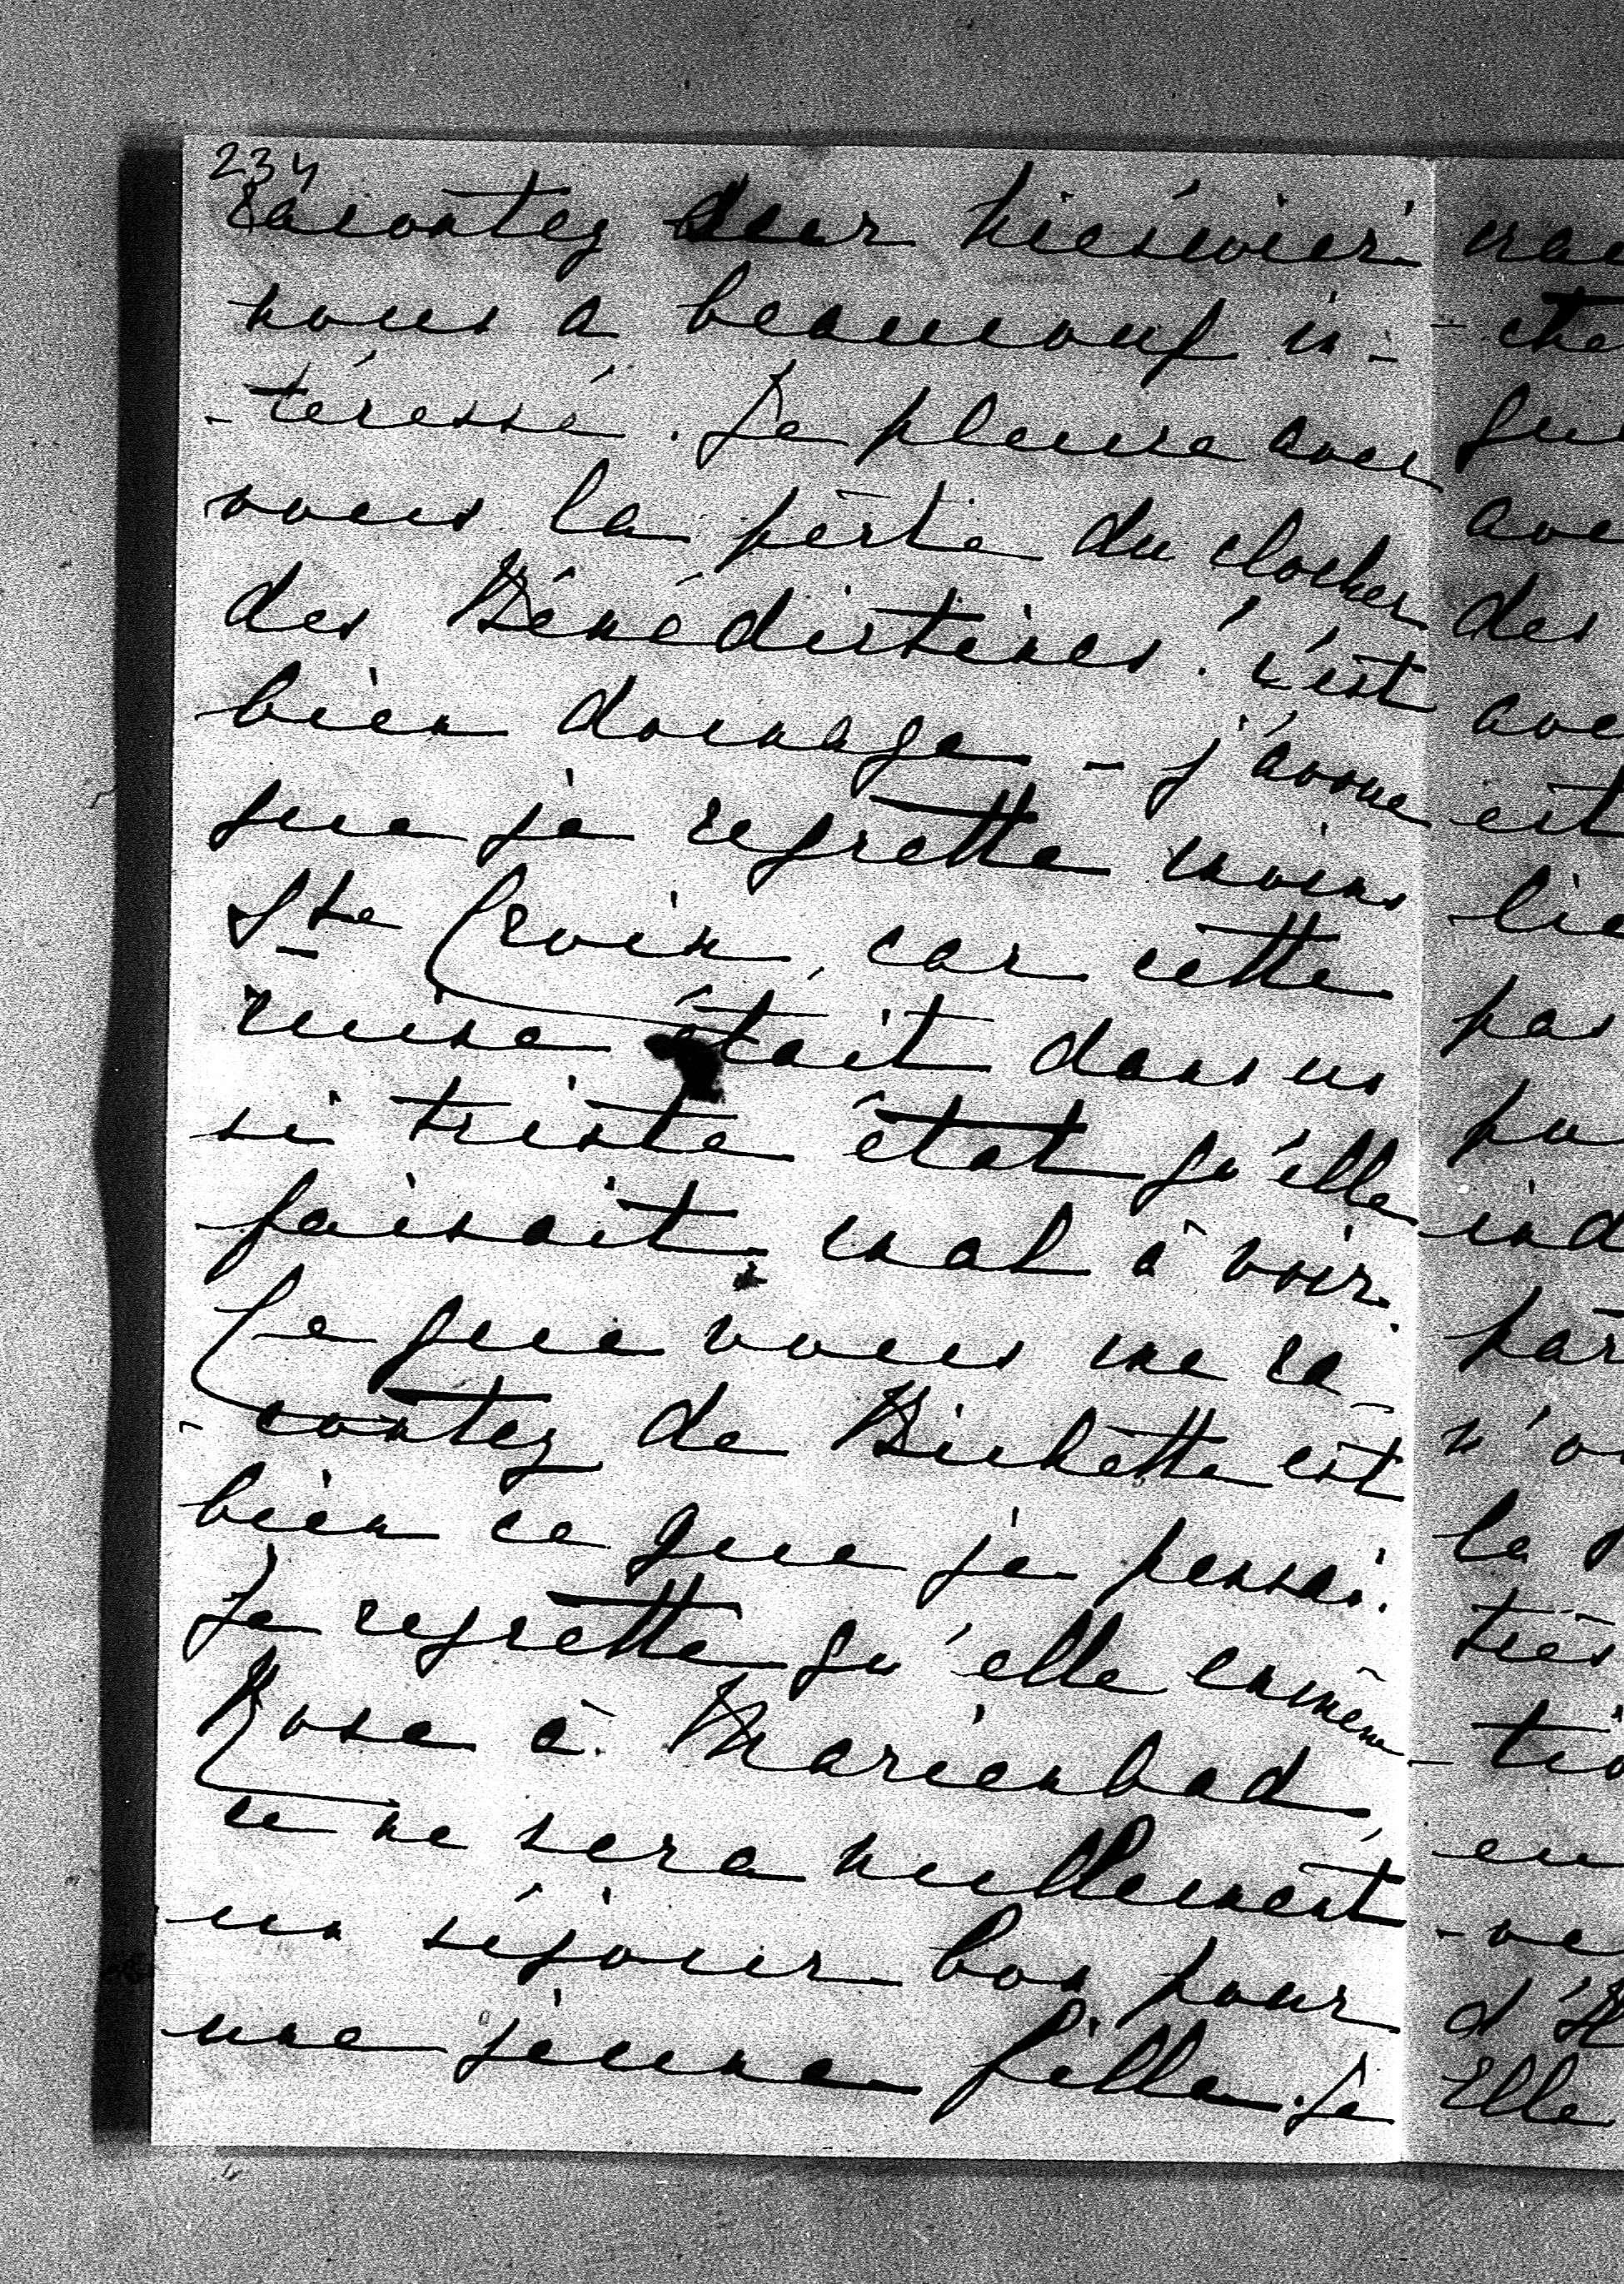 234
racontez sur Niéswież
nous a beaucoup in-
-téressé. Je pleure avec
vous la perte du clocher
des Bénédictines. c'est
bien domage - j'avoue
que je regrette moins
Ste Croix, car cette
ruine était dans un
si triste état qu'elle
faisait mal à voir.
Ce que vous me ra
-contez de Bichette est
bien ce que je pensai.
Je regrette qu'elle emmène
Rose à Marienbad,
ce ne sera nullement
un séjour bon pour
une jeune fille. Je
- che
ave
des
ave
est
lie
pas
pu
ind
par
n'o
la
ties
- tio
en
- ve
Elle